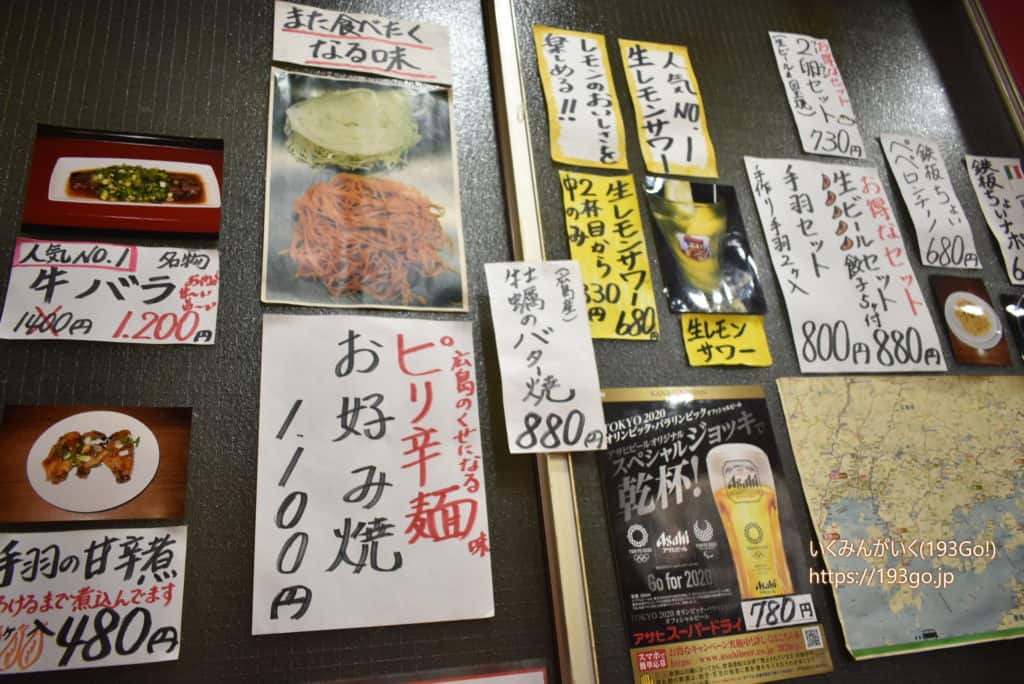 また食べたく
なる味
人気NO.1
名物
牛バラ
1400円
1.200円
手羽の甘辛煮
ろけるまで煮込んでます
入
480円
広島のくせになる味
ピリ辛麺
お好み焼
1.100円
(広島産)
牡蠣のバター焼
880円
レモンのおいしさを
楽しめる!!
人気NO.1
生レモンサワー
生レモンサワー
680円
2杯目から
中のみ
330円
生レモン
サワー
お得なセット
2個セット
730円
お得なセット
生ビールセット
餃子5ヶ付
880円
手羽セット
手作り手羽2ヶ入
800円
鉄板ちょい
ペペロンチーノ
680円
鉄板ちょい
TOKYO 2020
オリンピック・パラリンピックオフィシャルビール
アサヒビールオリジナル
スペシャルジョッキで
乾杯!
Asahi
Asahi
Asahi
Go for 2020
TOKYO 2020 オリンピック・パラリンピック
オフィシャルビール
アサヒスーパードライ
780円
スマホで
簡単応募
いくみんがいく(193Go!)
https://193go.jp